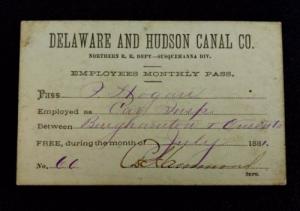 DELAWARE AND HUDSON CANAL CO.
NORTHERN R. R. DEPT.—SUSQUEHANNA DIV.
EMPLOYEES MONTHLY PASS.
Pass Hogan
Employed as Car
Between Binghamton &
FREE, during the month of July 188
No. 66 Hammond
SUPT.